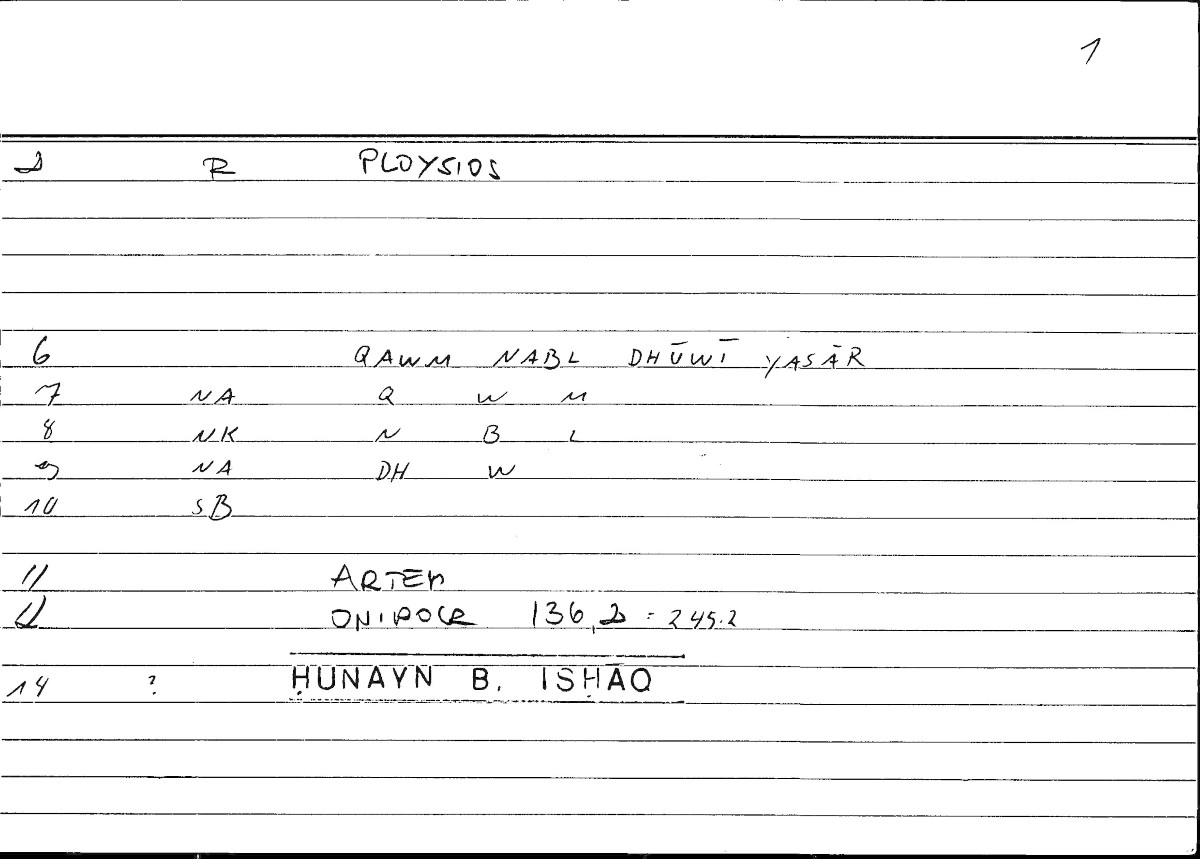 1
2 R PLOYSIOS
6 QAWM NABL DHŪWĪ YASĀR
7 NA Q W M
8 NK N B L
9 NA DH W
10 SB
11 ARTEM
12 ONIROCR 136,2 = 245.2
14 ? ḤUNAYN B. ISḤĀQ